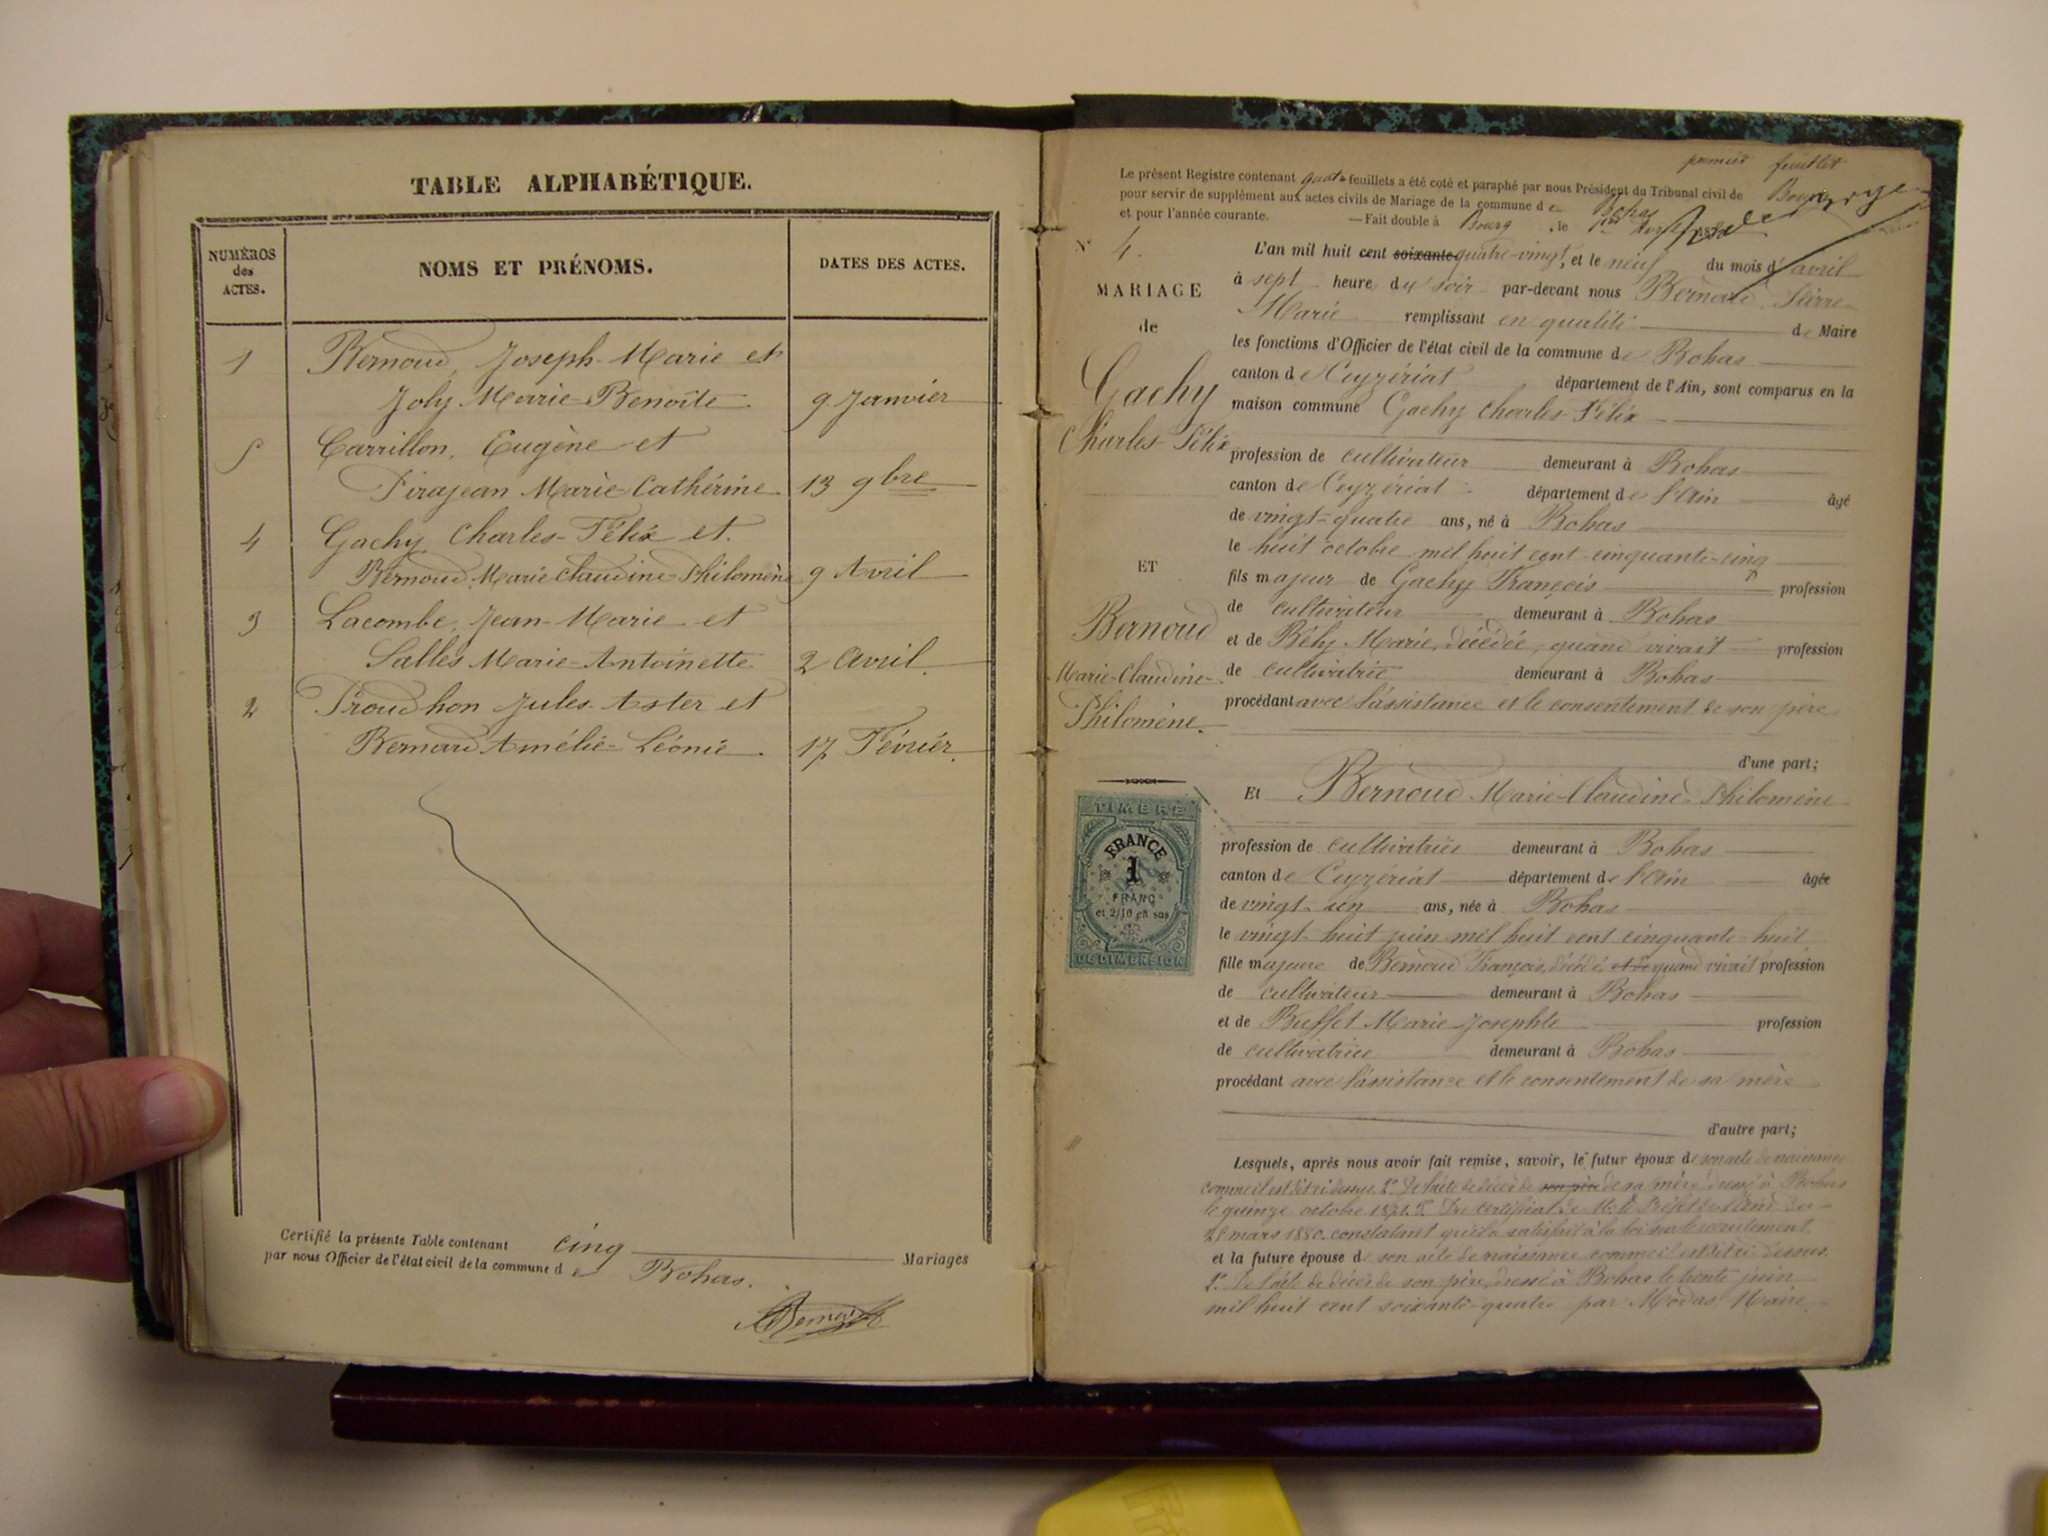 TABLE ALPHABÉTIQUE.
NUMÉROS
des
ACTES.
NOMS ET PRÉNOMS.
DATES DES ACTES.
1 Bernoud, Joseph-Marie et
Joly Marie-Benoîte 9 Janvier
5 Carrillon, Eugène et
Pirajean Marie Cathérine 13 9bre
4 Gachy Charles-Félix et
Bernoud Marie Claudine Philomène 9 Avril
3 Lacombe, Jean-Marie et
Salles Marie-Antoinette 2 Avril.
2 Proudhon Jules Aster et
Bernard Amélie-Léonie. 17 Février.
Certifié la présente Table contenant cinq Mariages
par nous Officier de l'état civil de la commune de Bohas.
premier feuillet
Le présent Registre contenant quatre feuillets a été coté et paraphé par nous Président du Tribunal civil de Bourg
pour servir de supplément aux actes civils de Mariage de la commune de Bohas
et pour l'année courante. — Fait double à Bourg, le
N° 4.
MARIAGE
de
Gachy
Charles-Félix
ET
Bernoud
Marie-Claudine-
Philomène.
TIMBRE
FRANCE
1
FRANC
et 2/10 en sus
DE DIMENSION
L'an mil huit cent soixante quatre-vingt, et le neuf du mois d'avril
à sept heure du soir par-devant nous Bernoud Pierre
Marie remplissant en qualité de Maire
les fonctions d'Officier de l'état civil de la commune de Bohas
canton de Ceyzériat département de l'Ain, sont comparus en la
maison commune Gachy Charles Félix
profession de cultivateur demeurant à Bohas
canton de Ceyzériat département de l'Ain âgé
de vingt-quatre ans, né à Bohas
le huit octobre mil huit cent cinquante-cinq
fils majeur de Gachy François profession
de cultivateur demeurant à Bohas
et de Bély Marie, décédée, quand vivait profession
de cultivatrice demeurant à Bohas
procédant avec l'assistance et le consentement de son père
d'une part;
Et Bernoud Marie-Claudine-Philomène
profession de cultivatrice demeurant à Bohas
canton de Ceyzériat département de l'Ain âgée
de vingt-un ans, née à Bohas
le vingt-huit juin mil huit cent cinquante-huit
fille majeure de Bernoud François, décédé, et de quand vivait profession
de cultivateur demeurant à Bohas
et de Buffet Marie Josephte profession
de cultivatrice demeurant à Bohas
procédant avec l'assistance et le consentement de sa mère
d'autre part;
Lesquels, après nous avoir fait remise, savoir, le futur époux de son acte de naissance
comme il est dit ci dessus. 2° De l'acte de décès de son père de sa mère, dressé à Bohas
le quinze octobre 1871. 3° Du certificat de M. le Préfet de l'Ain du
28 mars 1880. constatant qu'il a satisfait à la loi sur le recrutement.
et la future épouse de son acte de naissance comme il est dit ci dessus.
2° De l'acte de décès de son père, dressé à Bohas le trente juin
mil huit cent soixante-quatre par Modas Maire